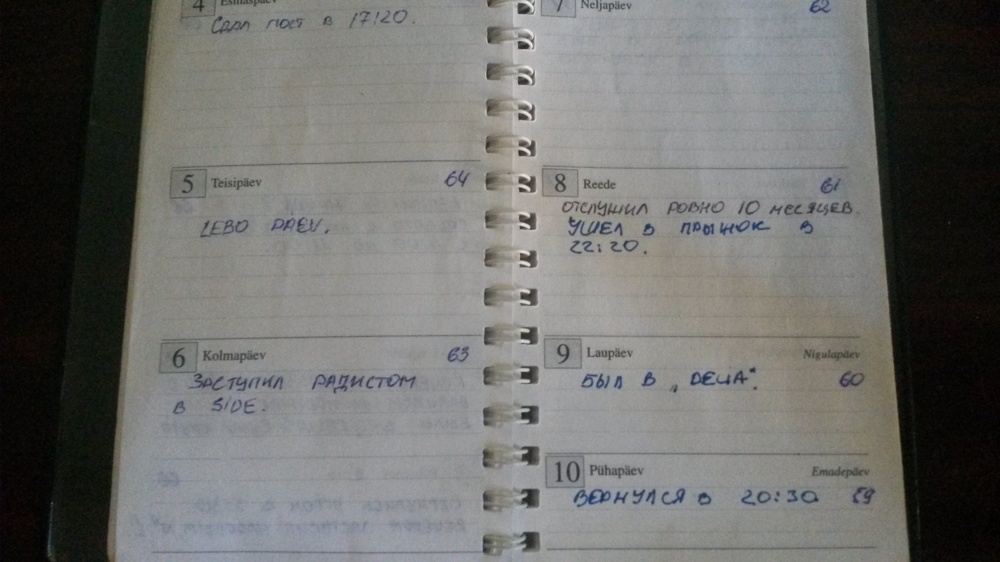 4 Esmaspäev
Сдал пост в 17:20.
5 Teisipäev 64
LEBO PÄEV.
6 Kolmapäev 63
Заступил радистом
в SIDE.
7 Neljapäev 62
8 Reede 61
отслушил ровно 10 месяцев.
ушел в прыжок в
22:20.
9 Laupäev Nigulapäev
был в „DELTA“. 60
10 Pühapäev Emadepäev
вернулся в 20:30 59